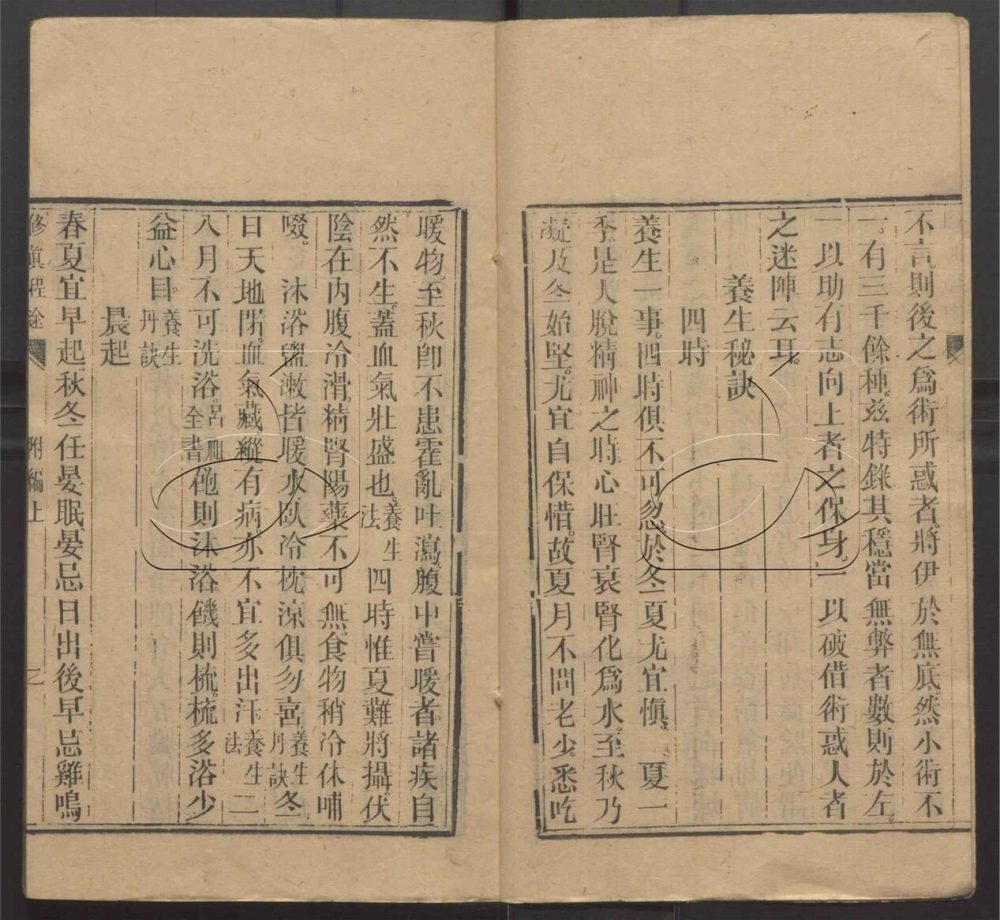 不言則後之爲術所惑者將伊於無底然小術不
一。有三千餘種茲特錄其穩當無弊者數則於左。
一以助有志向上者之保身。一以破借術惑人者
之迷陣云耳。
養生秘訣
四時
養生一事四時俱不可忽於冬夏尤宜慎。 夏一
季是人脫精神之時心旺腎衰腎化爲水。至秋乃
凝及冬始堅。尤宜自保惜。故夏月不問老少悉吃
暖物至秋卽不患霍亂吐瀉腹中嘗暖者諸疾自
然不生蓋血氣壯盛也。養生法 四時惟夏難將攝伏
陰在內腹冷滑精腎陽藥不可無食物稍冷休哺
啜。 沐浴盥漱皆暖水臥冷枕涼俱勿喜養生丹訣冬
日天地閉血氣藏縱有病亦不宜多出汗。養生法 二
八月不可洗浴。呂祖全書 飽則沐浴饑則梳。梳多浴少
益心目。養生丹訣
晨起
春夏宜早起秋冬任晏眠晏忌日出後早忌雞鳴
修真程途 附編上 二